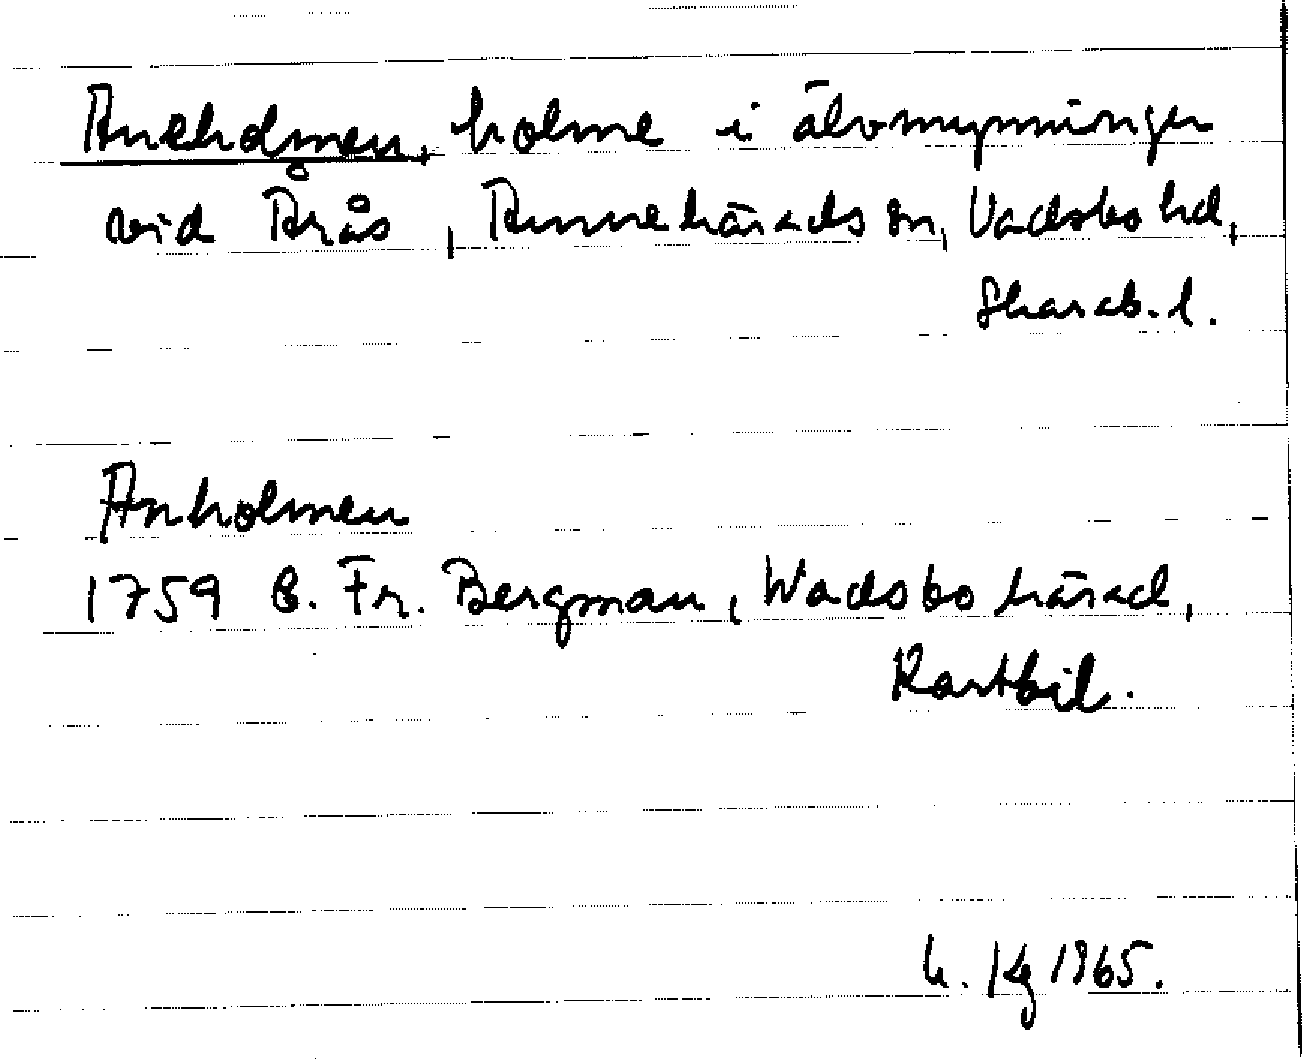 Aneholmen, holme i älvmynningen
vid Årås, Amnehärads sn, Vadsbo hd,
Skarab. l.
Anholmen
1759 B. Fr. Bergman, Wadsbo härad,
Kartbil.
1965.